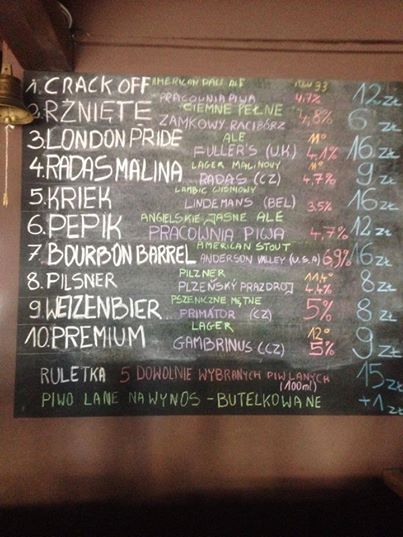 1. CRACK OFF AMERICAN PALE ALE PRACOWNIA PIWA 4,7% 12 ZŁ
2. RŻNIĘTE CIEMNE PEŁNE ZAMKOWY RACIBÓRZ 4,8% 6 ZŁ
3. LONDON PRIDE ALE FULLER'S (U.K.) 11° 4,1% 16 ZŁ
4. RADAS MALINA LAGER MALINOWY RADAS (CZ) 11° 4,7% 9 ZŁ
5. KRIEK LAMBIC WIŚNIOWY LINDEMANS (BEL) 3,5% 16 ZŁ
6. PEPIK ANGIELSKIE JASNE ALE PRACOWNIA PIWA 4,7% 12 ZŁ
7. BOURBON BARREL AMERICAN STOUT ANDERSON VALLEY (U.S.A) 6,9% 16 ZŁ
8. PILSNER PILZNER PLZEŃSKÝ PRAZDROJ 11,4° 4,4% 8 ZŁ
9. WEIZENBIER PSZENICZNE MĘTNE PRIMÁTOR (CZ) 5% 8 ZŁ
10. PREMIUM LAGER GAMBRINUS (CZ) 12° 5% 9 ZŁ
RULETKA 5 DOWOLNIE WYBRANYCH PIW LANYCH (100ml) 15 ZŁ
PIWO LANE NA WYNOS - BUTELKOWANE +1 ZŁ